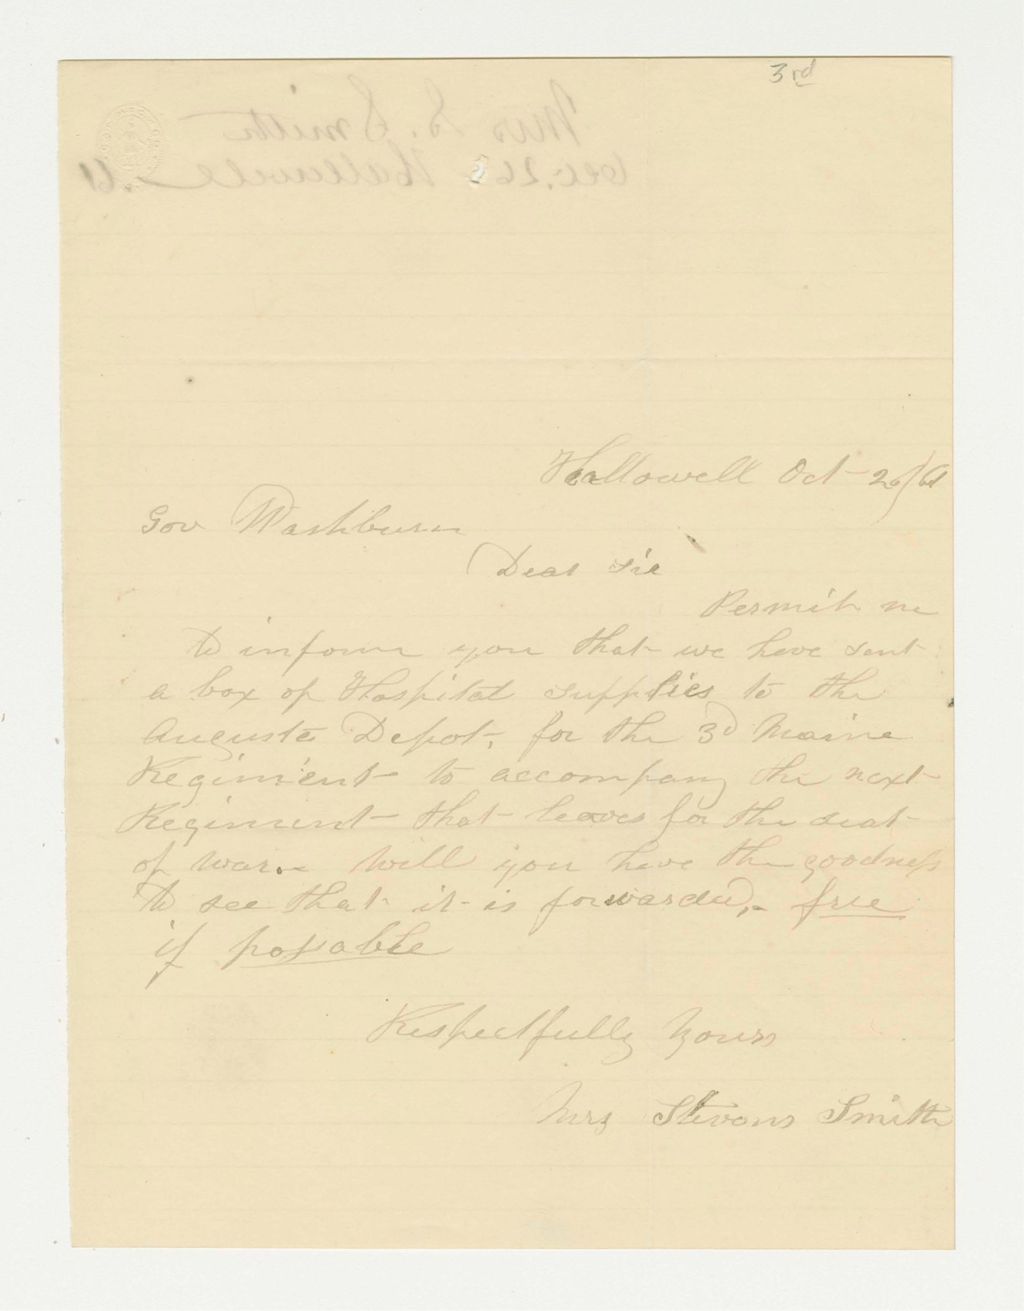 3rd
Mrs S. Smith
Dec. 26 Hallowell .61
Hallowell Oct 26/61
Gov Washburn
Dear Sir
Permit me
to inform you that we have sent
a box of Hospital supplies to the
Augusta Depot, for the 3d Maine
Regiment to accompany the next
Regiment that leaves for the seat
of war. Will you have the goodness
to see that it is forwarded, free
if possable
Respectfully Yours
Mrs Stevens Smith